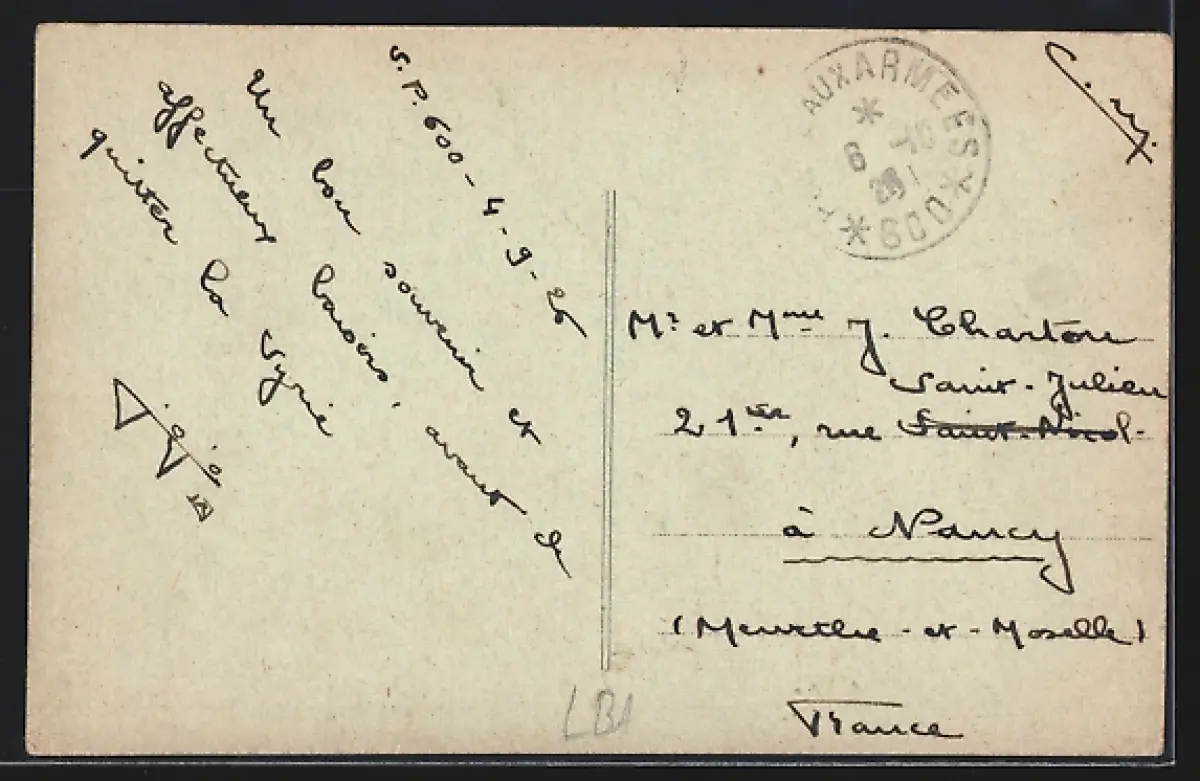 S.P. 600 - 4-9-26
Un bon souvenir et
affectueux baisers, avant de
quitter la Syrie
AUX ARMEES * 600 *
6 -10
26
Mr et Mme J. Charton
Saint-Julien
21 ter, rue Saint-Nicol-
à Nancy
(Meurthe-et-Moselle)
France
LB1